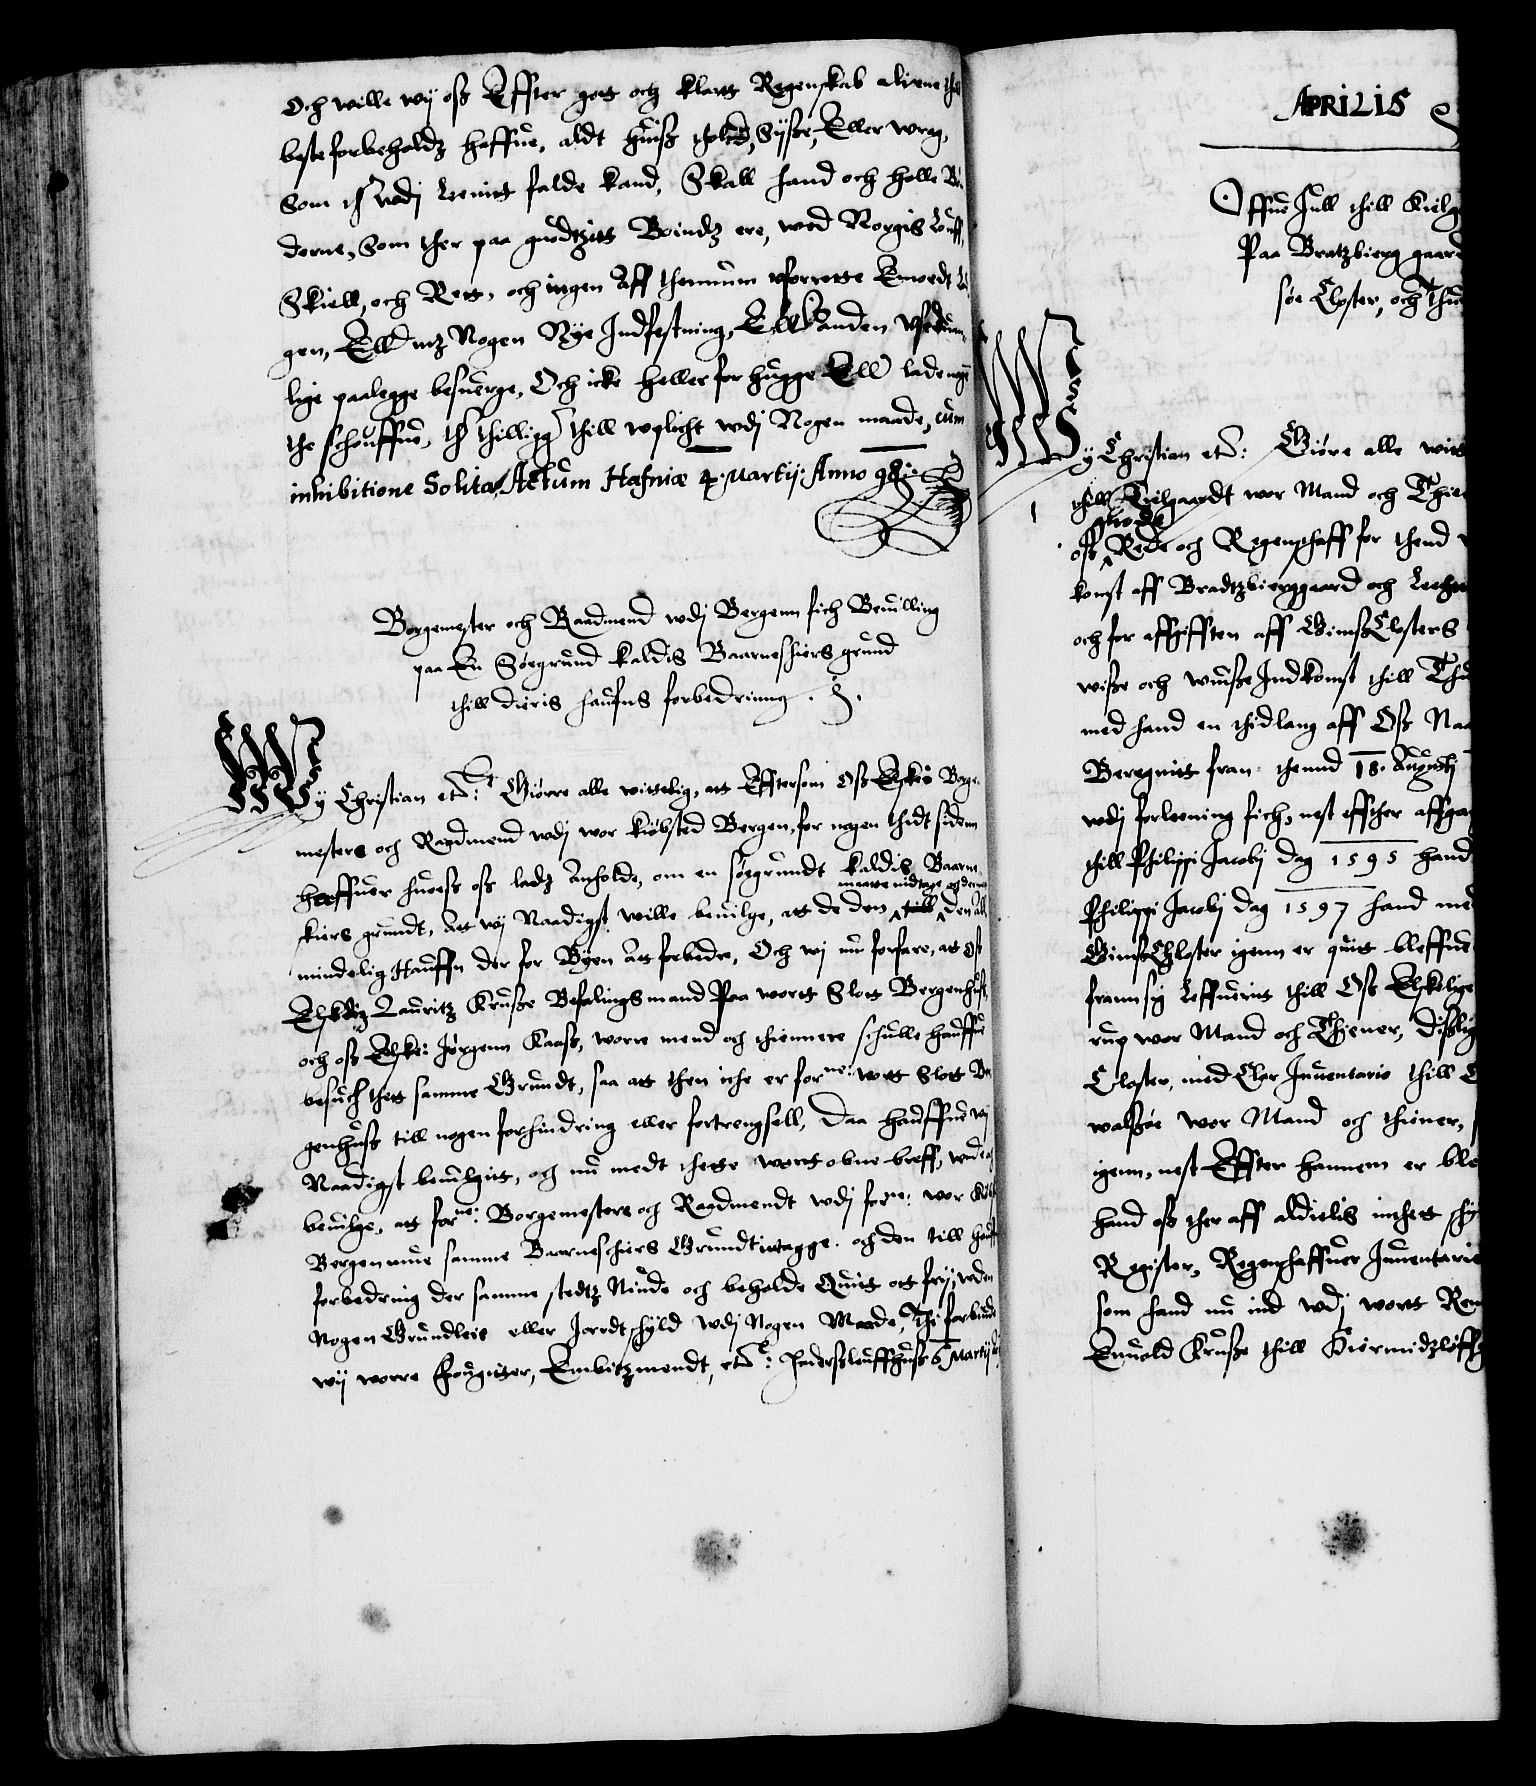 Och wille wij oß Effter got och klartt Regenskab aliene
beste forbeholdz haffue, aldt huiß Sijsze, Eller wrag,
Som wdj Leenit falde kand, Skall hand och holle Bø
derne, Som ther paa guodtzitt Boindz ere, wed Norgis Louff,
Skiell, och Rett, och ingen Aff thennum vforrette Emodt
gen, Ell mz Nogen Nye Indfestning, Ell anden vseduan
lige paalegge besuerge, Och icke heller forhugge Ell lade
the schouffue, thilligge thill wplicht wdj Nogen maade, cum
inhibitione Solita, Actum Hafniæ 4. Martij: Anno 98:
Borgemester och Raadmend wdj Bergenn fich Beuilling
paa En Søegrund kaldis Baarneskiers grund
thill dieris haufns forbedring
Wy Christian etc: Giørre alle witterlig, att Efftersom Oß Elske: Borge
mestere och Raadmend wdj wor kiøbsted Bergen, for nogen thidt sidenn
herffuer huoeß oß ladz Anholde, om en søegrundt kaldis Baarne
maatte indtage och denn
skiers grundt, At wj Naadigst wille beuilge, att de den till den all
mindelig Hauffn der for Byen Att forbedre, Och wj nu forfare, att oß
Elskeligz Lauritz Krusze Befalingsmand Paa wortt Slott Bergenhuß,
och oß Elske: Jørgenn Kaaß, worre mend och thiennere schulle hauffue
besuch thett samme Grundt, saa att then iche er forne: wortt Slott Be
genhuß till nogen forhindring eller fortrengsell, Daa hauffue wj
Naadigst beuilgit, och nu medt thette wortt obne breff, wnde och
beuilge, att forne: Borgemestere och Raadmendt wdj forne: wor Kiøb
Bergen mue samme Baarneschiers Grundt indtagge, och den till hauf
forbedring der samme stedtz Niude och beholde Quit ott frij, wden
Nogen Grundleie eller Jordtskyld wdj Nogen Maade, Thi forbiude
wij worre fougitter, Embitzmendt, etc: Haderßleuffhuß 6 Martij
APRILIS
Offue Jull thill Kielg
Paa Bratzbierg gaard
søe Closter, och Thu
Wy Christian etc: Giøre alle witt
thill Kielgaardt wor Mand och Thien
giorde
oß Rede och Regenschaff for thend
komst aff Bradtzbierggaard och Leehn
och for affgifften aff GimßClosters
wisße och wuisße Indkomst thill Thu
med hand en thidlang aff Oß Naa
Beregnitt fran thend 18. Augustj
wdj forleening fich, nest effther affgan
thill Philippi Jacobj dag 1595 hand
Philippi Jacobj dag 1597 hand med
GimßCloster igenn er quitt bleffue
frann sig Leffueritt thill Oß Elskelige
rup wor Mand och Thiener, dißlig
Closter, med Clar Inuentario thill
walsøe wor Mand och thiener,
igenn, nest Effter hannem er ble
hand oß ther aff aldielis inthet sky
Register, Regenschaffuer Inuentarie
som hand nu ind wdj wortt Ren
Enuold Krusße thill Hiermidzløffg